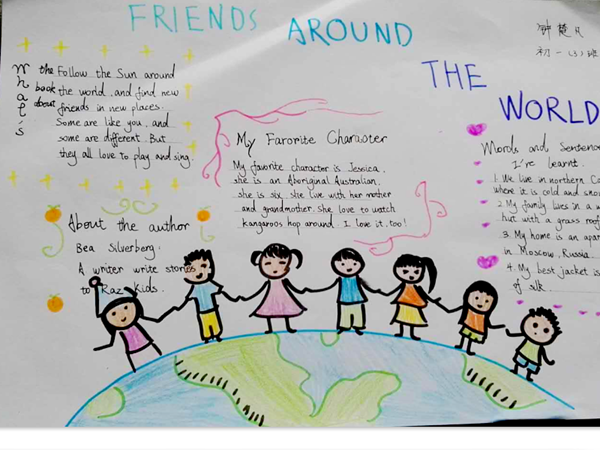 FRIENDS AROUND
THE WORLD
初一(5)班
What's
the
book
about
Follow the Sun around
the world, and find new
friends in new places.
Some are like you, and
some are different. But
they all love to play and sing.
My Farorite Charaoter
My favorite character is Jessica,
she is an Aboriginal Australian,
she is six, she live with her mother
and grandmother. She love to watch
kangaroos hop around. I love it, too!
About the author
Bea Silverberg.
A writer write stories
to Raz Kids.
Words and Senten
I've learnt.
1. We live in northern Ca
where it is cold and sno
2. My family lives in a
hut with a grass roof
3. My home is an apar
in Moscow, Russia
4. My best jacket is
of silk